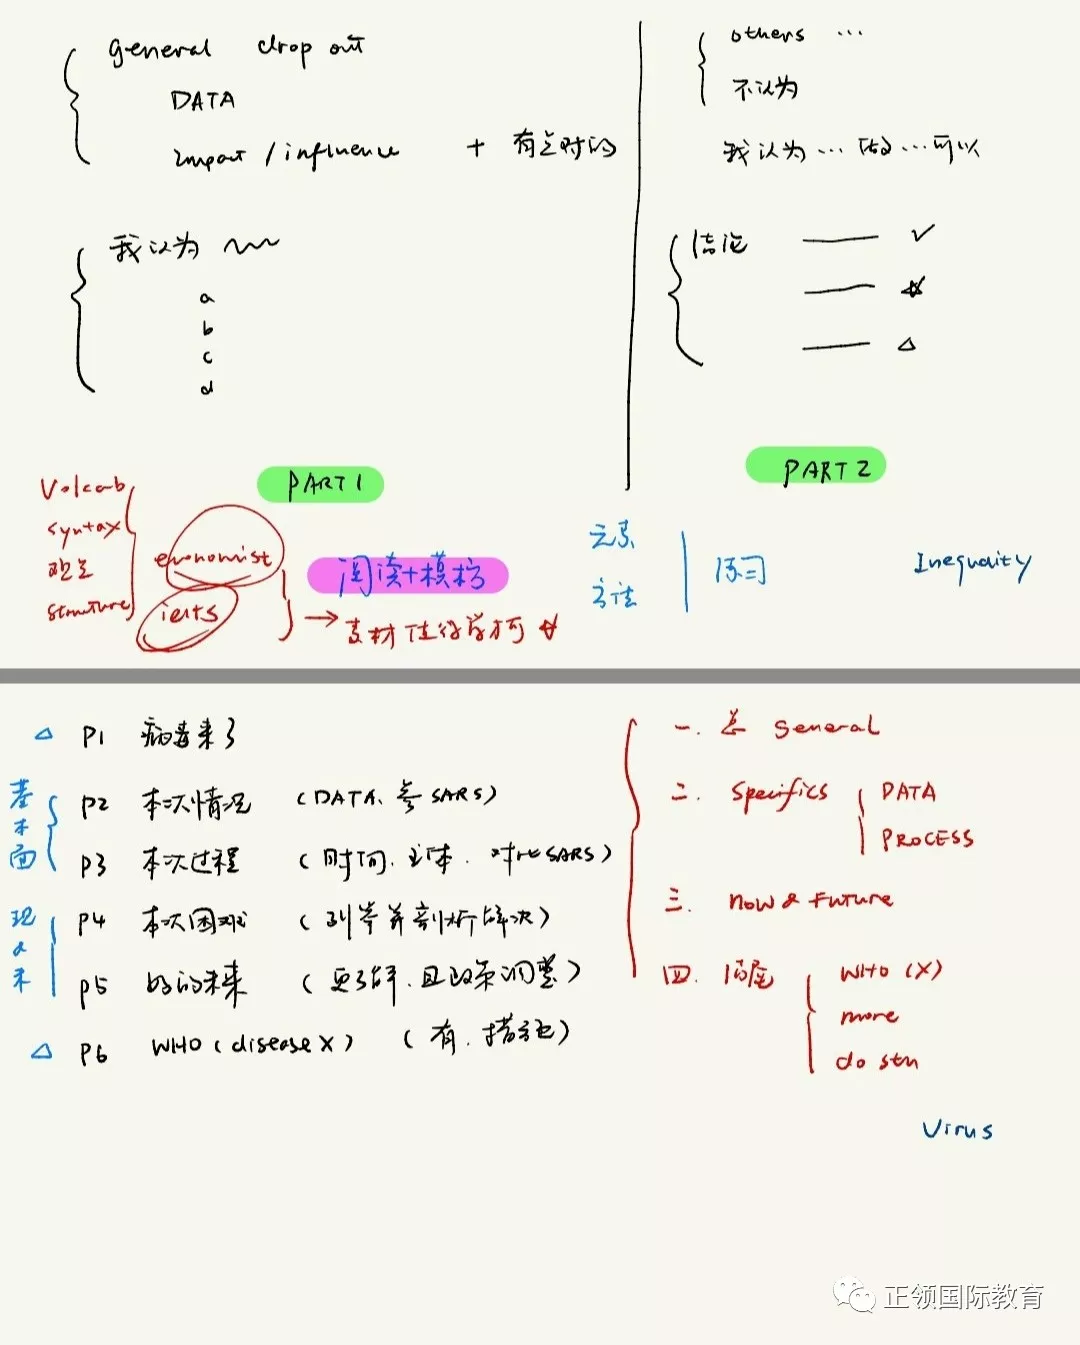 general drop out
DATA
impact / influence + 有点对的
我认为
a
b
c
d
others ...
不认为
我认为 ... 做 ... 可以
结论
PART 1
PART 2
Volcab
syntax
观点
structure
economist
ielts
阅读+模仿
→ 素材 值得学习
元素
方法
练习
Inequality
P1 病毒来了
基本面
P2 本次情况 (DATA、参 SARS)
P3 本次过程 (时间、主体、对比SARS)
现&未
P4 本次困难 (列举并剖析解决)
P5 的未来 (更了解、且政策调整)
P6 WHO (disease X) (有、措施)
一. 总 General
二. Specifics
DATA
PROCESS
三. now & Future
四. 结尾
WHO (X)
more
do sth
Virus
正领国际教育